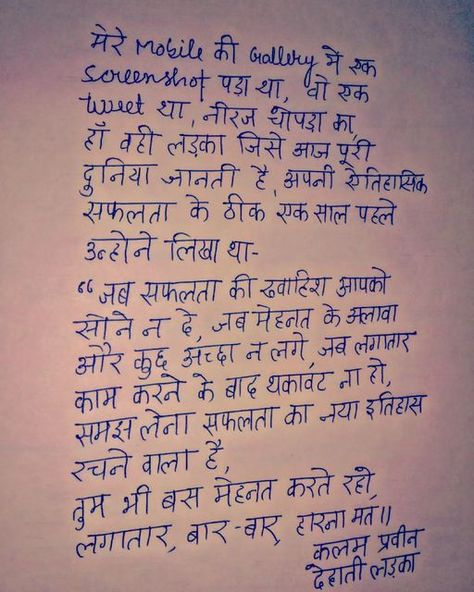 मेरे Mobile की Gallery में एक
Screenshot पड़ा था, वो एक
tweet था, नीरज चोपड़ा का,
हाँ वही लड़का जिसे आज पूरी
दुनिया जानती है, अपनी ऐतिहासिक
सफलता के ठीक एक साल पहले
उन्होने लिखा था-
"जब सफलता की ख्वाहिश आपको
सोने न दे, जब मेहनत के अलावा
और कुछ अच्छा न लगे, जब लगातार
काम करने के बाद थकावट ना हो,
समझ लेना सफलता का नया इतिहास
रचने वाला है,
तुम भी बस मेहनत करते रहो,
लगातार, बार-बार, हारना मत॥
कलम प्रवीन
देहाती लड़का